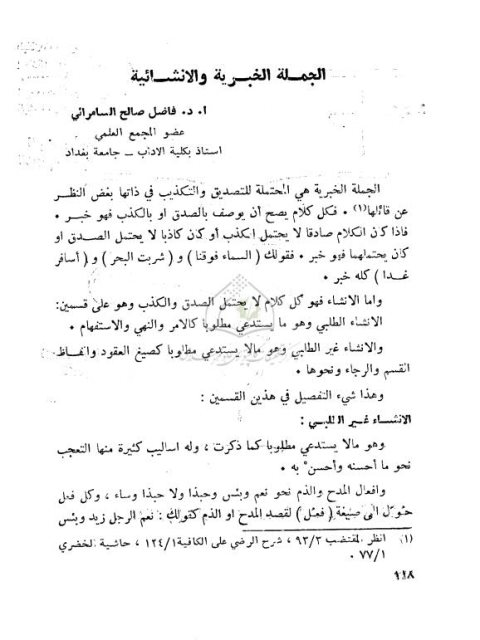 الجملة الخبرية والانشائية
ا. د. فاضل صالح السامرائي
عضو المجمع العلمي
استاذ بكلية الاداب ــ جامعة بغداد
الجملة الخبرية هي المحتملة للتصديق والتكذيب في ذاتها بغض النظر
عن قائلها(١) ٠ فكل كلام يصح أن يوصف بالصدق او بالكذب فهو خبر ٠
فاذا كان الكلام صادقا لا يحتمل الكذب أو كان كاذبا لا يحتمل الصدق او
كان يحتملهما فهو خبر ٠ فقولك ( السماء فوقنا ) و ( شربت البحر ) و ( أسافر
غدا ) كله خبر ٠
واما الانشاء فهو كل كلام لا يحتمل الصدق والكذب وهو على قسمين:
الانشاء الطلبي وهو ما يستدعي مطلوبا كالامر والنهي والاستفهام ٠
والانشاء غير الطلبي وهو مالا يستدعي مطلوبا كصيغ العقود والفاظ
القسم والرجاء ونحوها ٠
وهذا شيء التفصيل في هذين القسمين :
الانشاء غير الطلبي :
وهو مالا يستدعي مطلوبا كما ذكرت ، وله اساليب كثيرة منها التعجب
نحو ما أحسنه وأحسن° به ٠
وافعال المدح والذم نحو نعم وبئس وحبذا ولا حبذا وساء ، وكل فعل
حول الى صيغة ( فعُل ) لقصد المدح او الذم كقولك : نعم الرجل زيد وبئس
(١) انظر المقتضب ٩٣/٣ ، شرح الرضي على الكافية ١٢٤/١ ، حاشية الخضري
٧٧/١ ٠